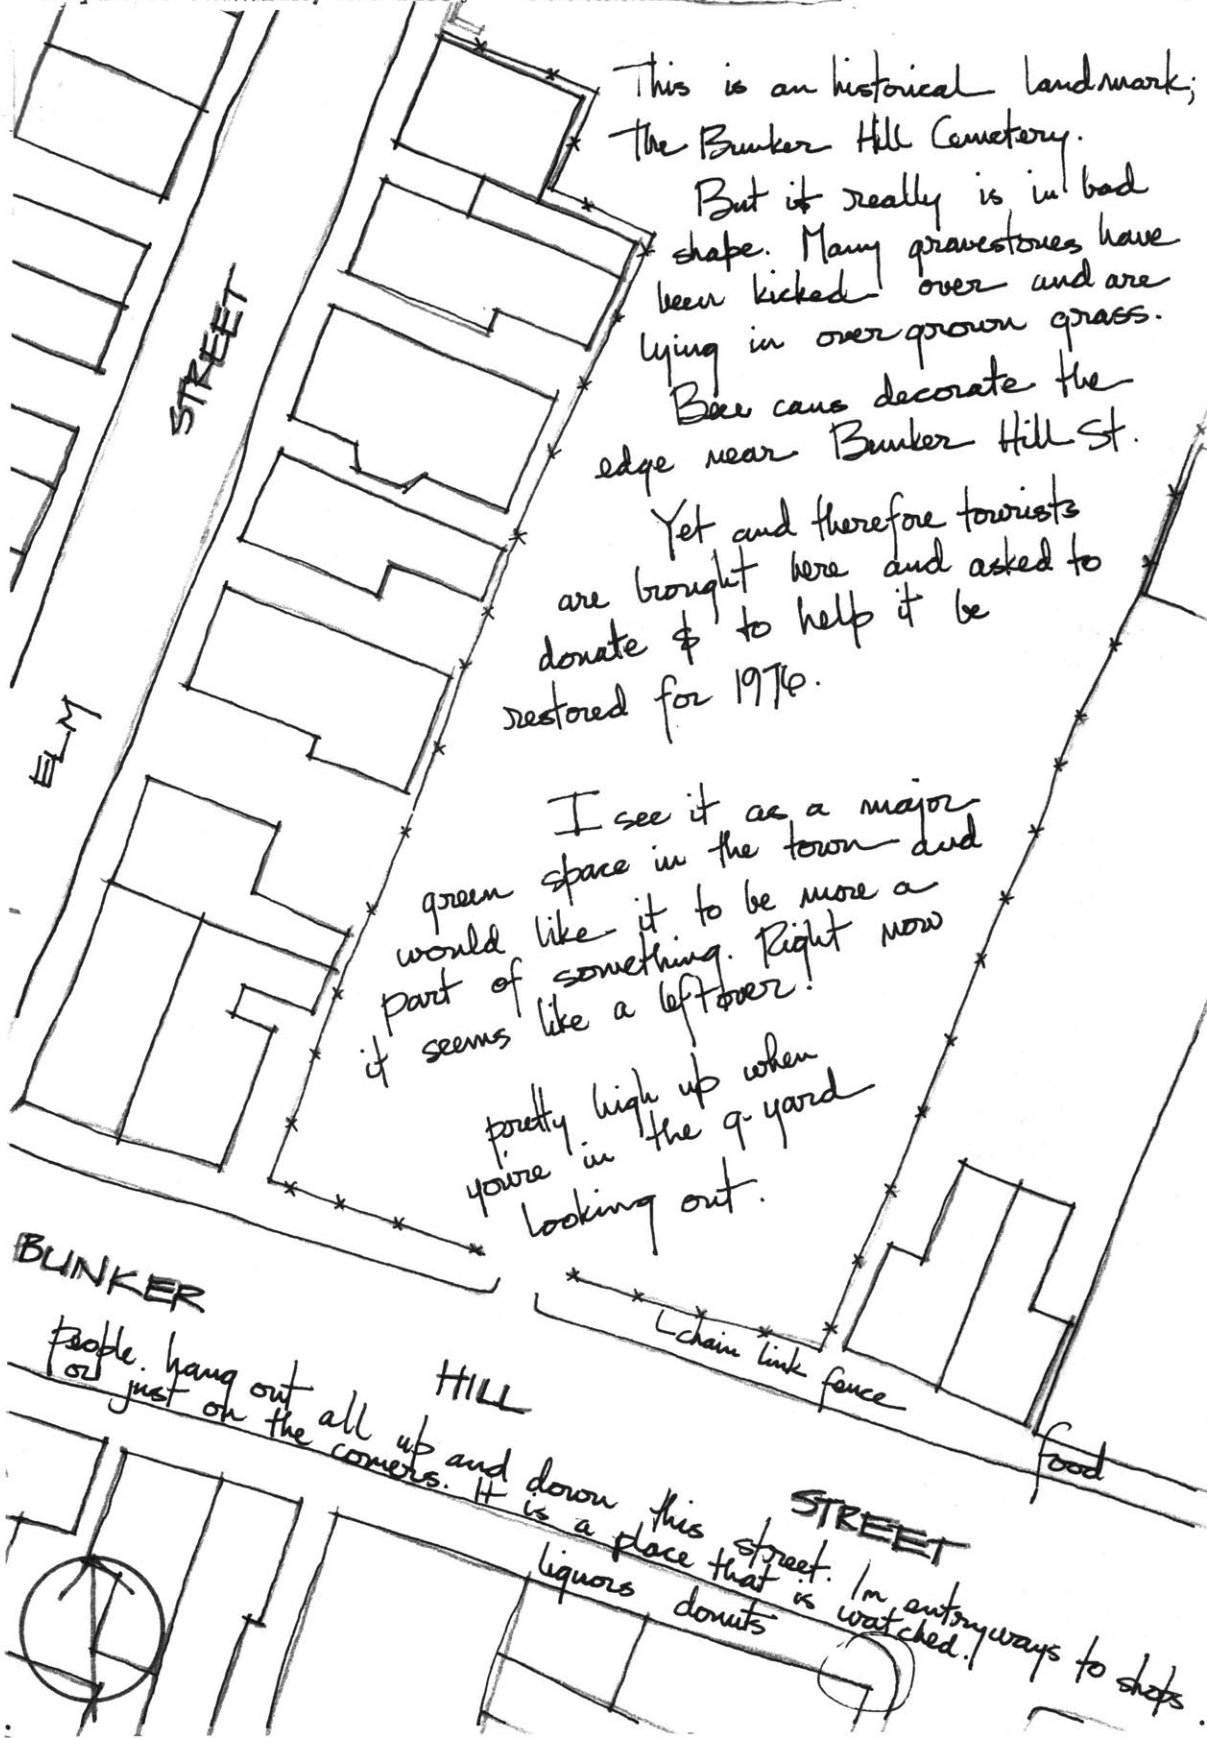 This is an historical landmark;
The Bunker Hill Cemetery.
But it really is in bad
shape. Many gravestones have
been kicked over and are
lying in overgrown grass.
Beer cans decorate the
edge near Bunker Hill St.
Yet and therefore tourists
are brought here and asked to
donate $ to help it be
restored for 1976.
I see it as a major
green space in the town and
would like it to be more a
part of something. Right now
it seems like a leftover!
pretty high up when
you're in the g-yard
looking out.
STREET
ELM
chain link fence
food
BUNKER
HILL
STREET
people hang out all up and down this street. In entryways to shops.
or just on the corners. It is a place that is watched!
liquors donuts